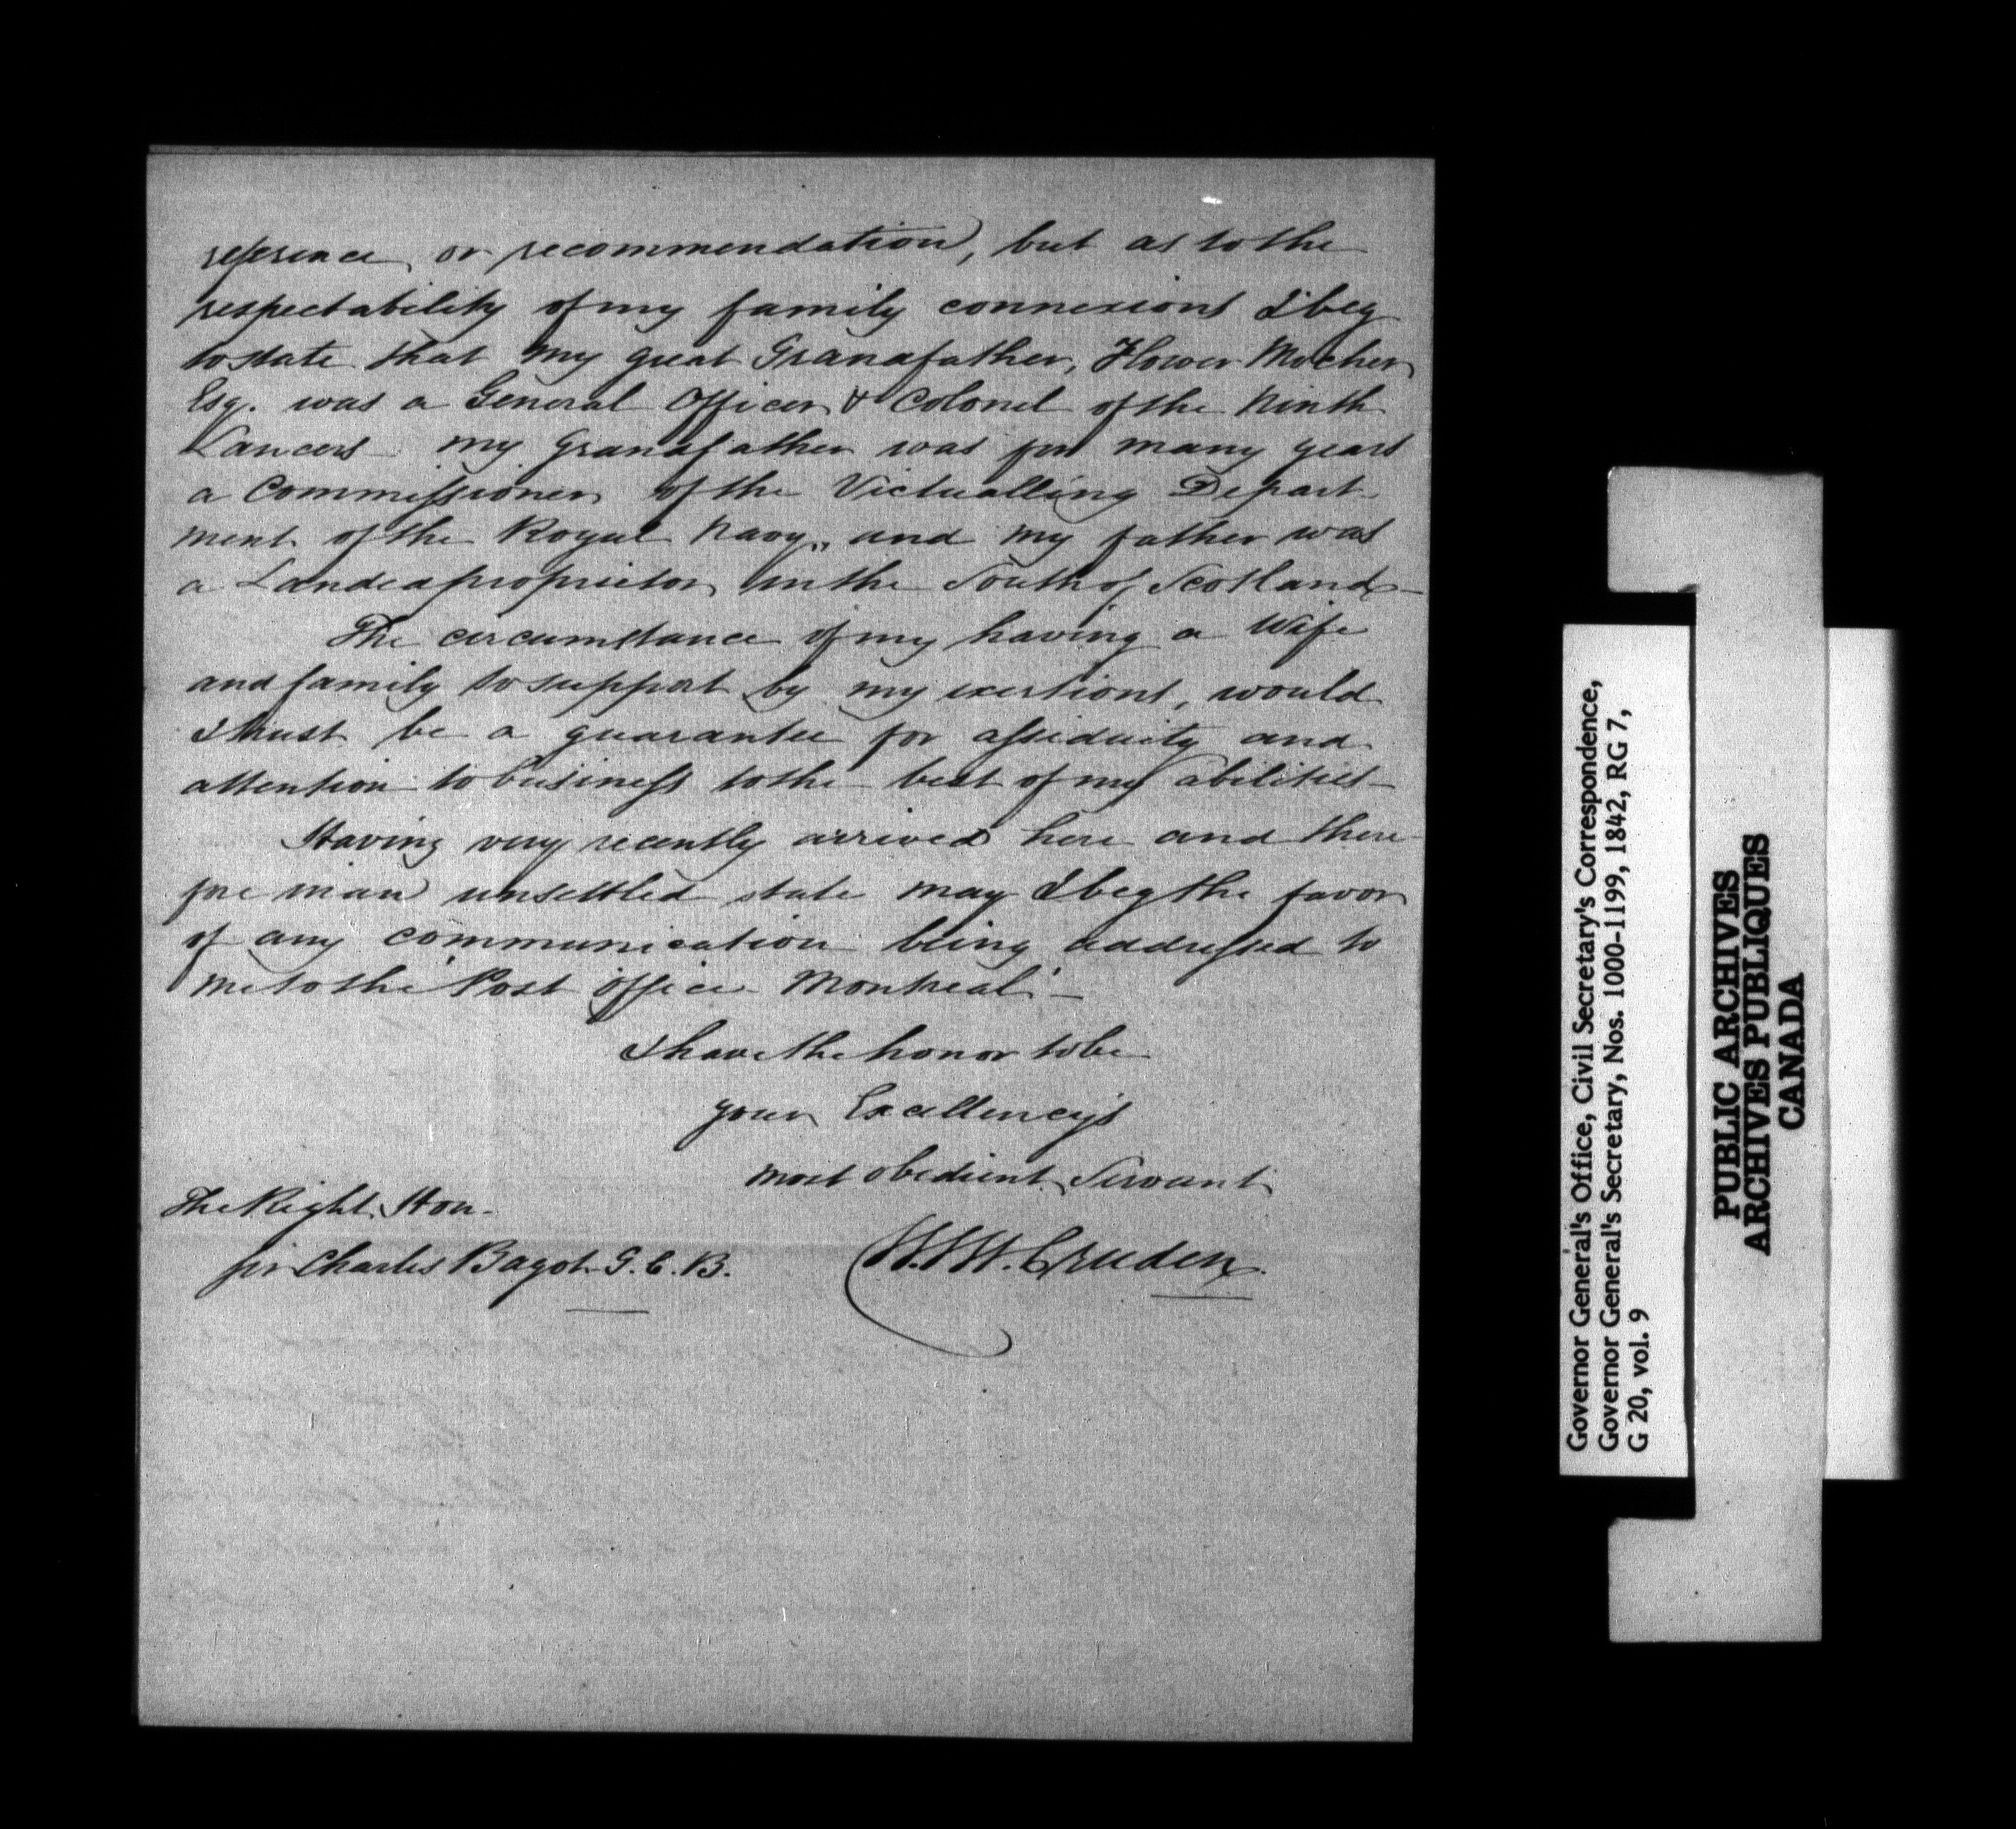 reference or recommendation, but as to the
respectability of my family connexions I beg
to state that my great Grandfather, Flower Mocher
Esq. was a General Officer & Colonel of the Ninth
Lancers my Grandfather was for many years
a Commissioner of the Victualling Depart-
ment of the Royal Navy, and my father was
a Landed proprietor in the South of Scotland—
The circumstance of my having a Wife
and family to support by my exertions, would
I trust be a guarantee for assiduity and
attention to business to the best of my abilities—
Having very recently arrived here and there
fore in an unsettled state may I beg the favor
of any communication being addressed to
me to the Post Office Montreal.—
I have the honor to be
your Excellency's
most obedient Servant
The Right Hon.
Sir Charles Bagot G.C.B.
Cruden
Governor General's Office, Civil Secretary's Correspondence,
Governor General's Secretary, Nos. 1000-1199, 1842, RG 7,
G 20, vol. 9
PUBLIC ARCHIVES
ARCHIVES PUBLIQUES
CANADA